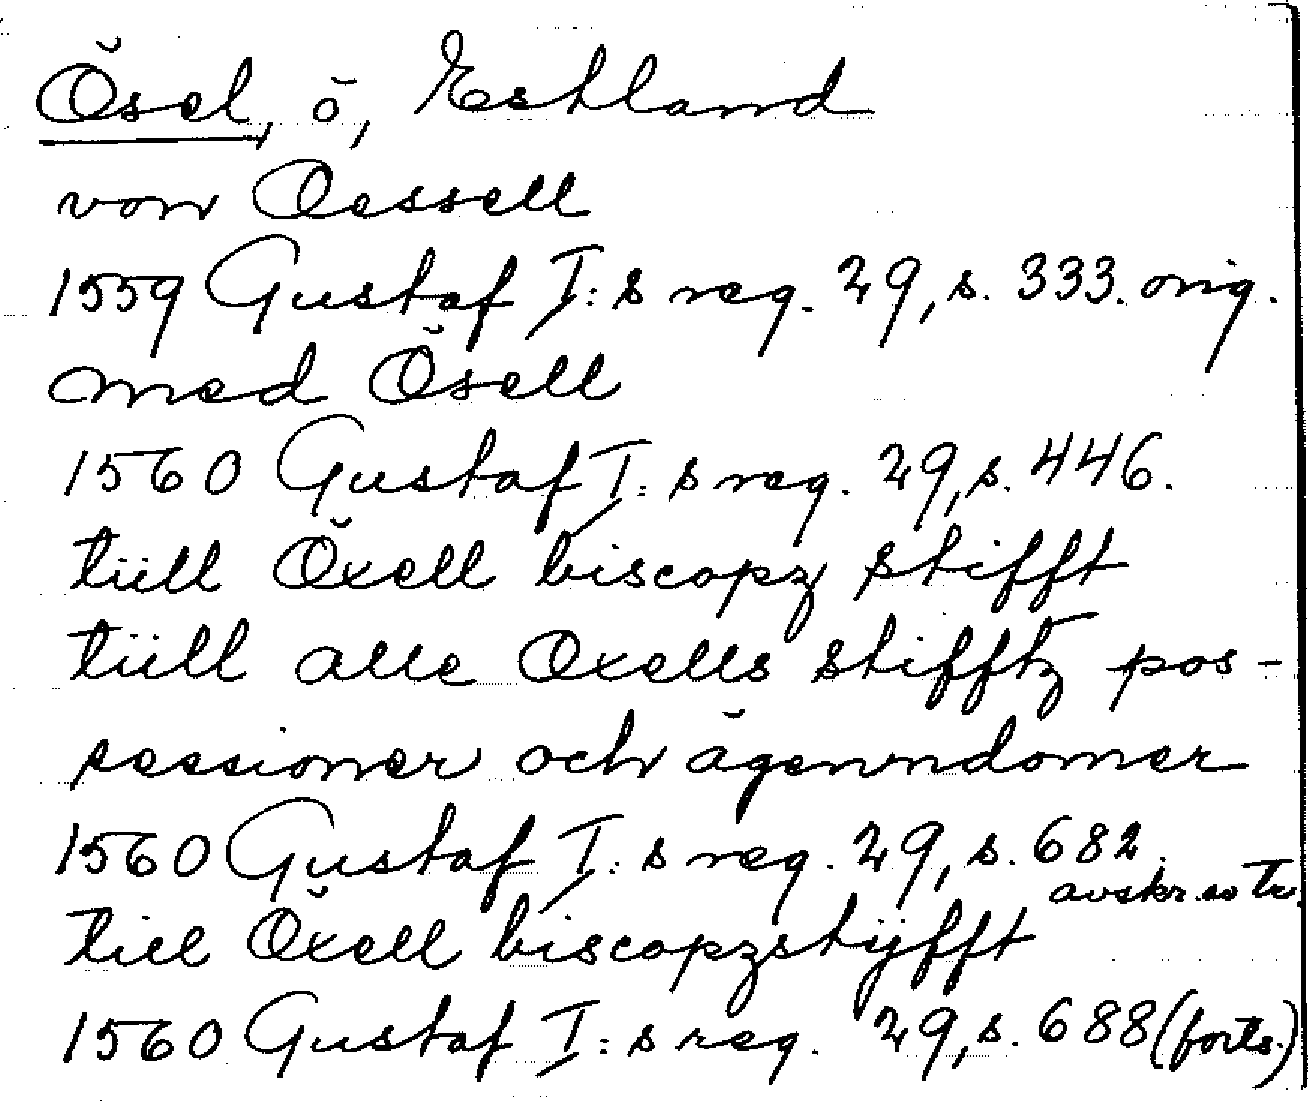 Ösel, ö, Estland
von Oessell
1559 Gustaf I:s reg. 29, s. 333. orig.
med Ösell
1560 Gustaf I:s reg. 29, s. 446.
tiill Öxell biscopz stifft
tiill alle Oxells stifftz pos-
sessioner och ägenndomer
1560 Gustaf I:s reg. 29, s. 682.
avskr. so tr.
till Öxell biscopzstÿfft
1560 Gustaf I:s reg. 29, s. 688 (forts.)